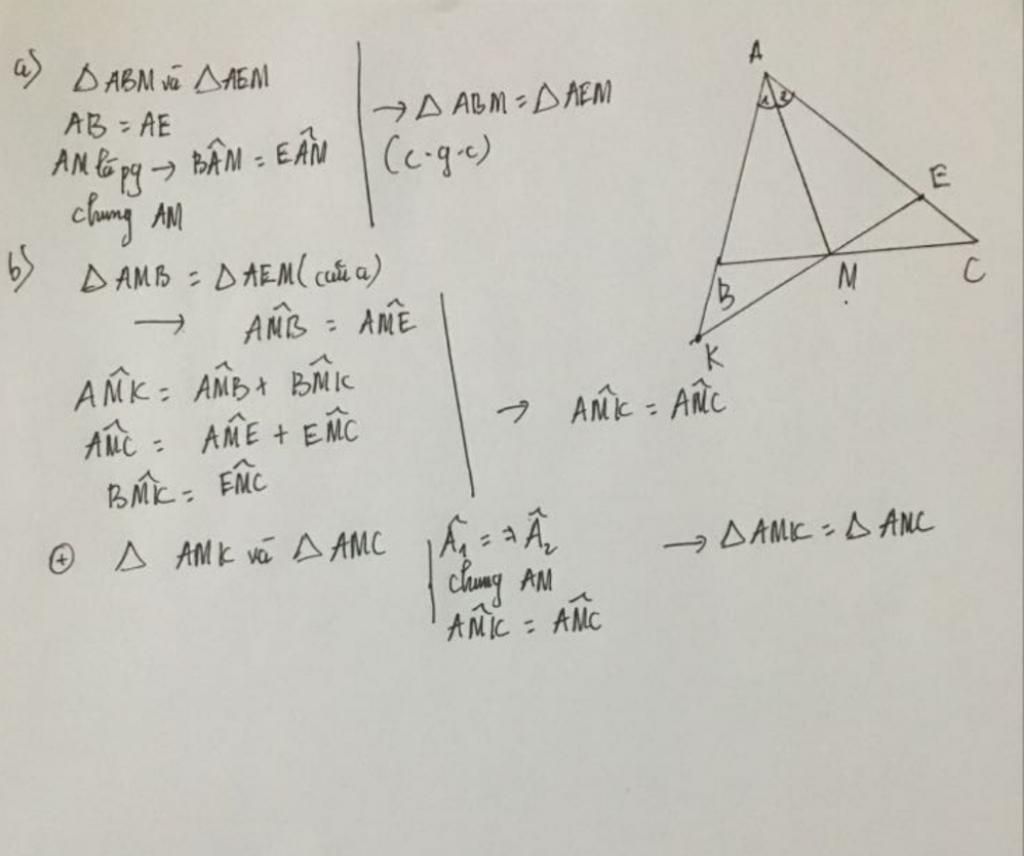 a) △ABM và △AEM
AB = AE
AM là pg → BÂM = EÂM
chung AM
→ △ABM = △AEM
(c.g.c)
b) △AMB = △AEM (câu a)
→ AM̂B = AM̂E
AM̂K = AM̂B + BM̂K
AM̂C = AM̂E + EM̂C
BM̂K = EM̂C
→ AM̂K = AM̂C
⊕ △ AMK và △AMC
Â₁ = Â₂
chung AM
AM̂K = AM̂C
→ △AMK = △AMC
A
1 2
E
B
M
C
K